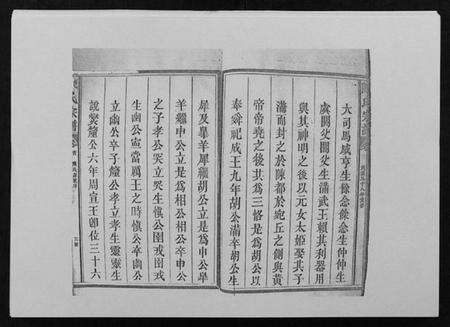 大司馬威亨生餘念餘念生仲仲生
虞閼父閼父生滿武王賴其利器用
與其神明之後以元女太姬娶其子
滿而封之於陳都於宛丘之側與黃
帝帝堯之後其爲三恪是爲胡公以
奉舜祀成王九年胡公滿卒胡公生
犀及臯羊犀繼胡公立是爲申公臯
羊繼申公立是爲相公相公卒申公
之子孝公突立突生慎公圉戎圉戎
生幽公寧當厲王之時慎公卒幽公
立幽公卒子釐公孝立孝生靈靈生
說燮釐公六年周宣王卽位三十六
氏宗譜